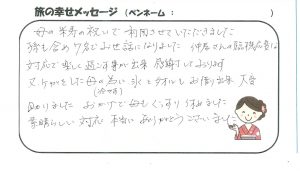 旅の幸せメッセージ (ペンネーム: )
母の米寿の祝いで利用させていただきました
孫も含め7名でお世話になりました 仲居さんの臨機応変な
対応で楽しく過ごす事が出来 感謝しております
又、ケガをした母の為に氷とタオルもお借り出来 大変
助かりました おかげで母もぐっすり休めました
素晴らしい対応 本当にありがとうございました